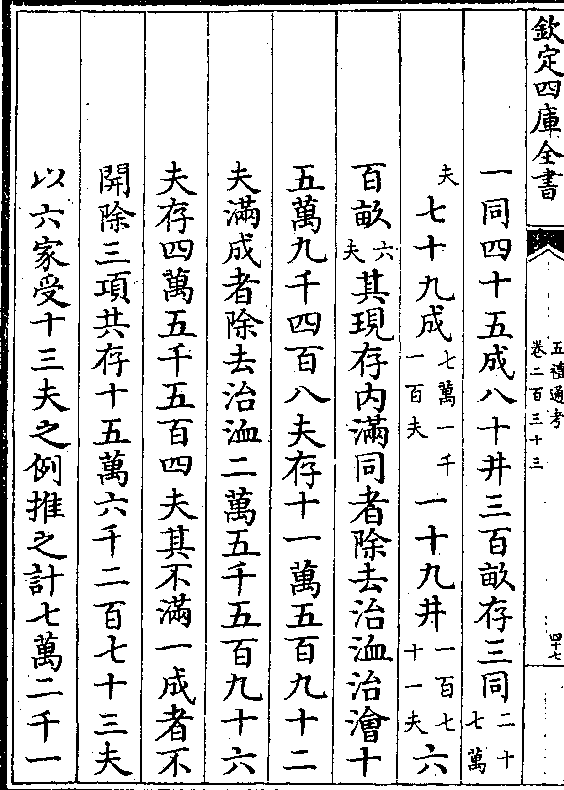 欽定四庫全書
五禮通考
卷二百三十三
四十七
一同四十五成八十井三百畝存三同二十七萬
夫七十九成七萬一千一百夫一十九井一百七十一夫六
百畝六夫其現存内滿同者除去治洫治澮十
五萬九千四百八夫存十一萬五百九十二
夫滿成者除去治洫二萬五千五百九十六
夫存四萬五千五百四夫其不滿一成者不
開除三項共存十五萬六千二百七十三夫
以六家受十三夫之例推之計七萬二千一